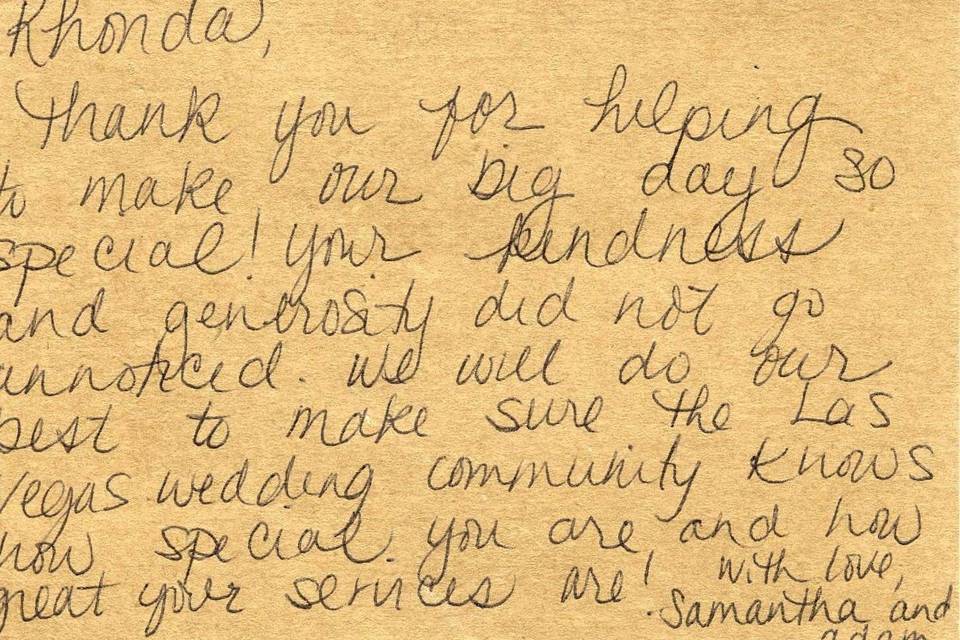 Rhonda,
Thank you for helping
to make our big day so
special! Your kindness
and generosity did not go
unnoticed. We will do our
best to make sure the Las
Vegas wedding community knows
how special you are and how
great your services are! With love,
Samantha and
adam